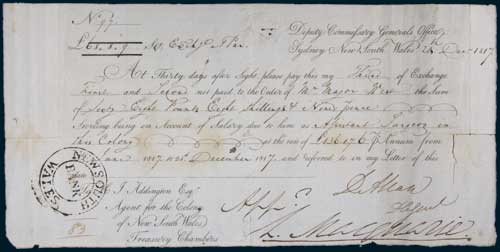 No. 97.
£68.8.9 Str. Exchge. at Par.
Deputy Commissary Generals Office
Sydney New South Wales 24 Decr. 1817
At Thirty days after Sight please pay this my Third of Exchange
First and Second not paid, to the Order of Mr. Major West the Sum
of Sixty Eight Pounds Eight Shillings & Nine pence
Sterling being on Account of Salary due to him as Assistant Surgeon in
this Colony at the rate of Per Annum from
June 1817 to 24 December 1817 and referred to in my Letter of this
J. Addington Esqr.
Agent for the Colony
of New South Wales
Treasury Chambers
D Allan
Appd.
L. Macquarie
NEW SOUTH WALES
BANK
83